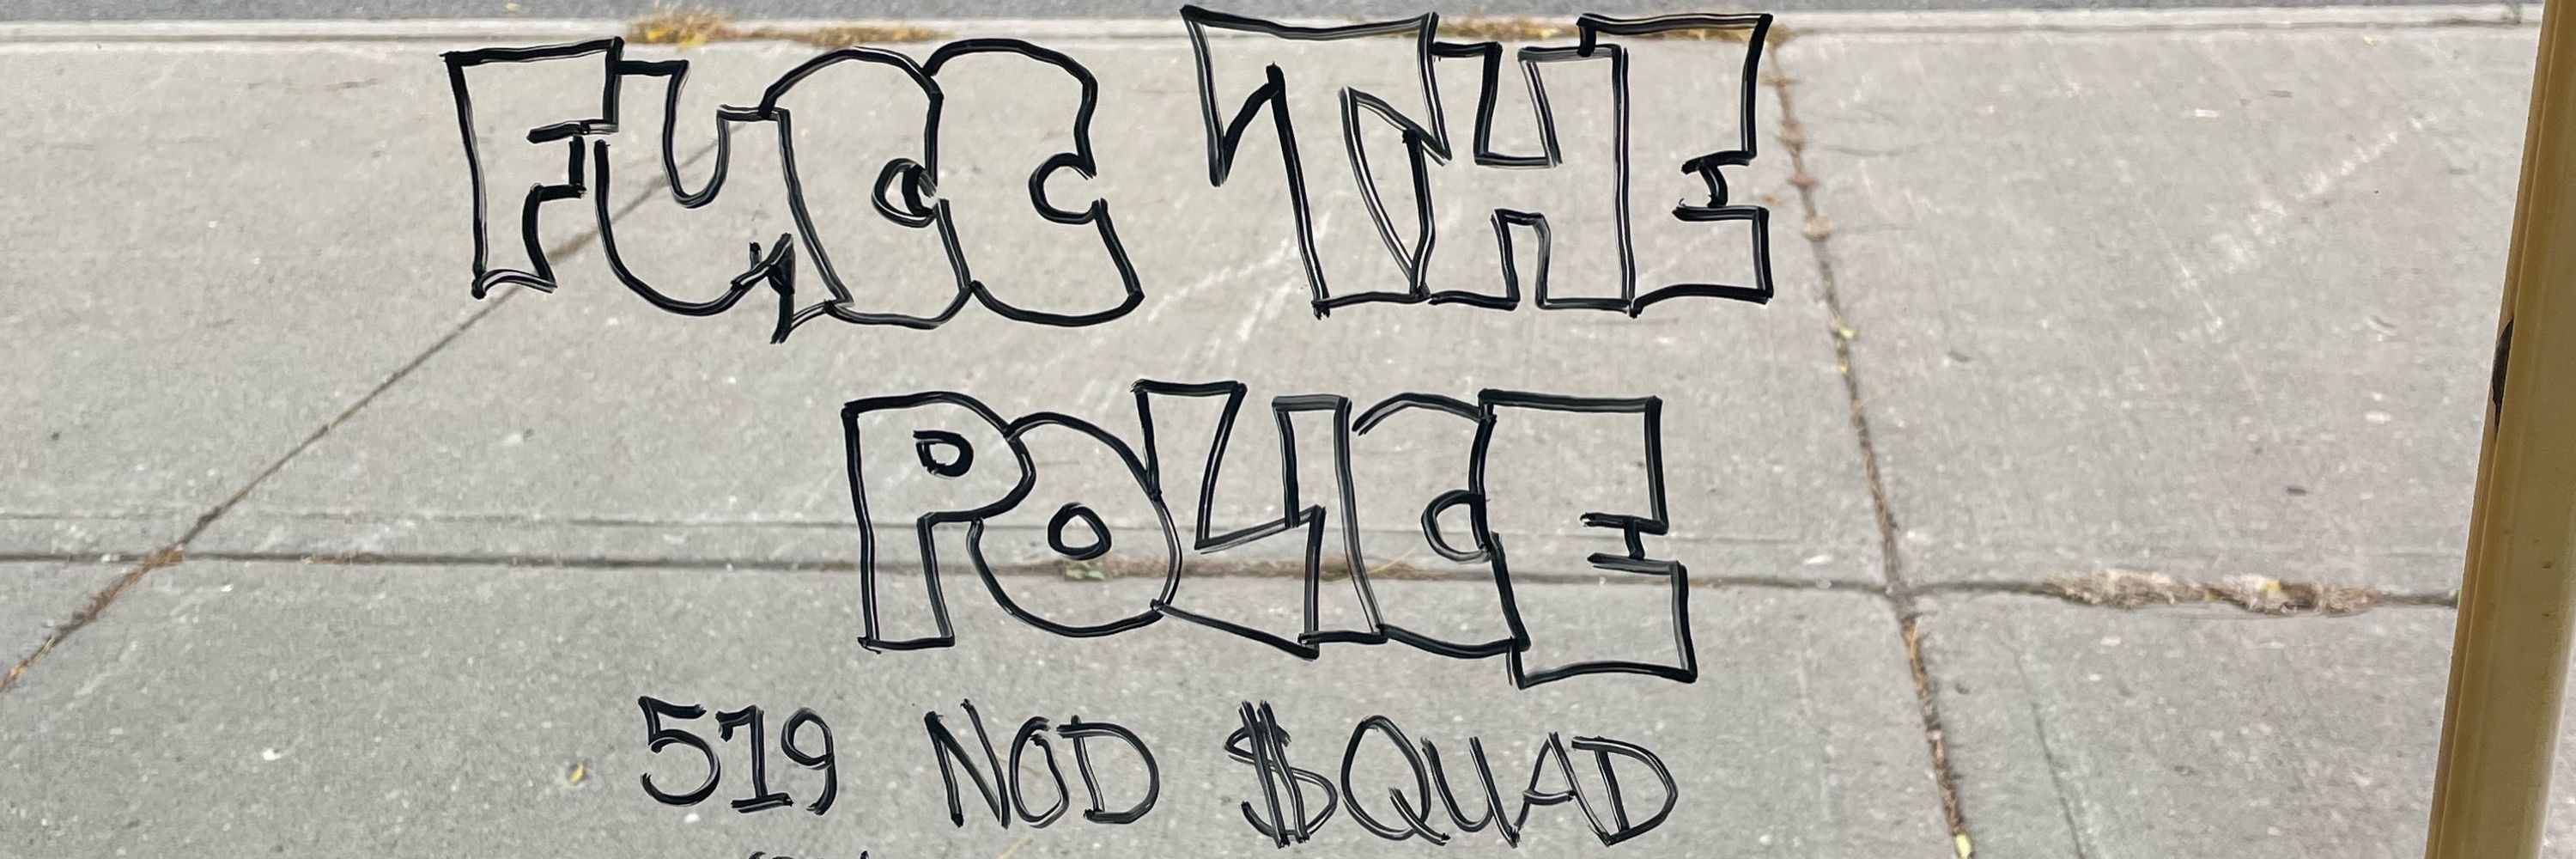 FUCC THE
POLICE
519 NOD $QUAD